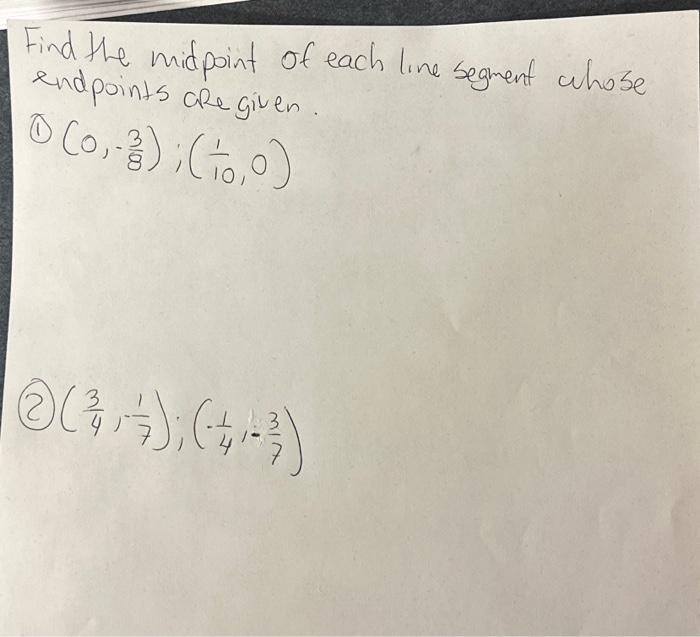 Find the midpoint of each line segment whose
endpoints are given.
① (0, -3/8) ; (1/10, 0)
② (3/4, -1/7) ; (-1/4, -3/7)